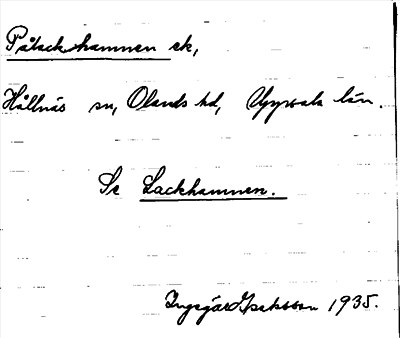 Pålackhamnen ek,
Hållnäs sn, Olands hd, Uppsala län.
Se Lackhamnen.
Ingegärd Isaksson 1935.